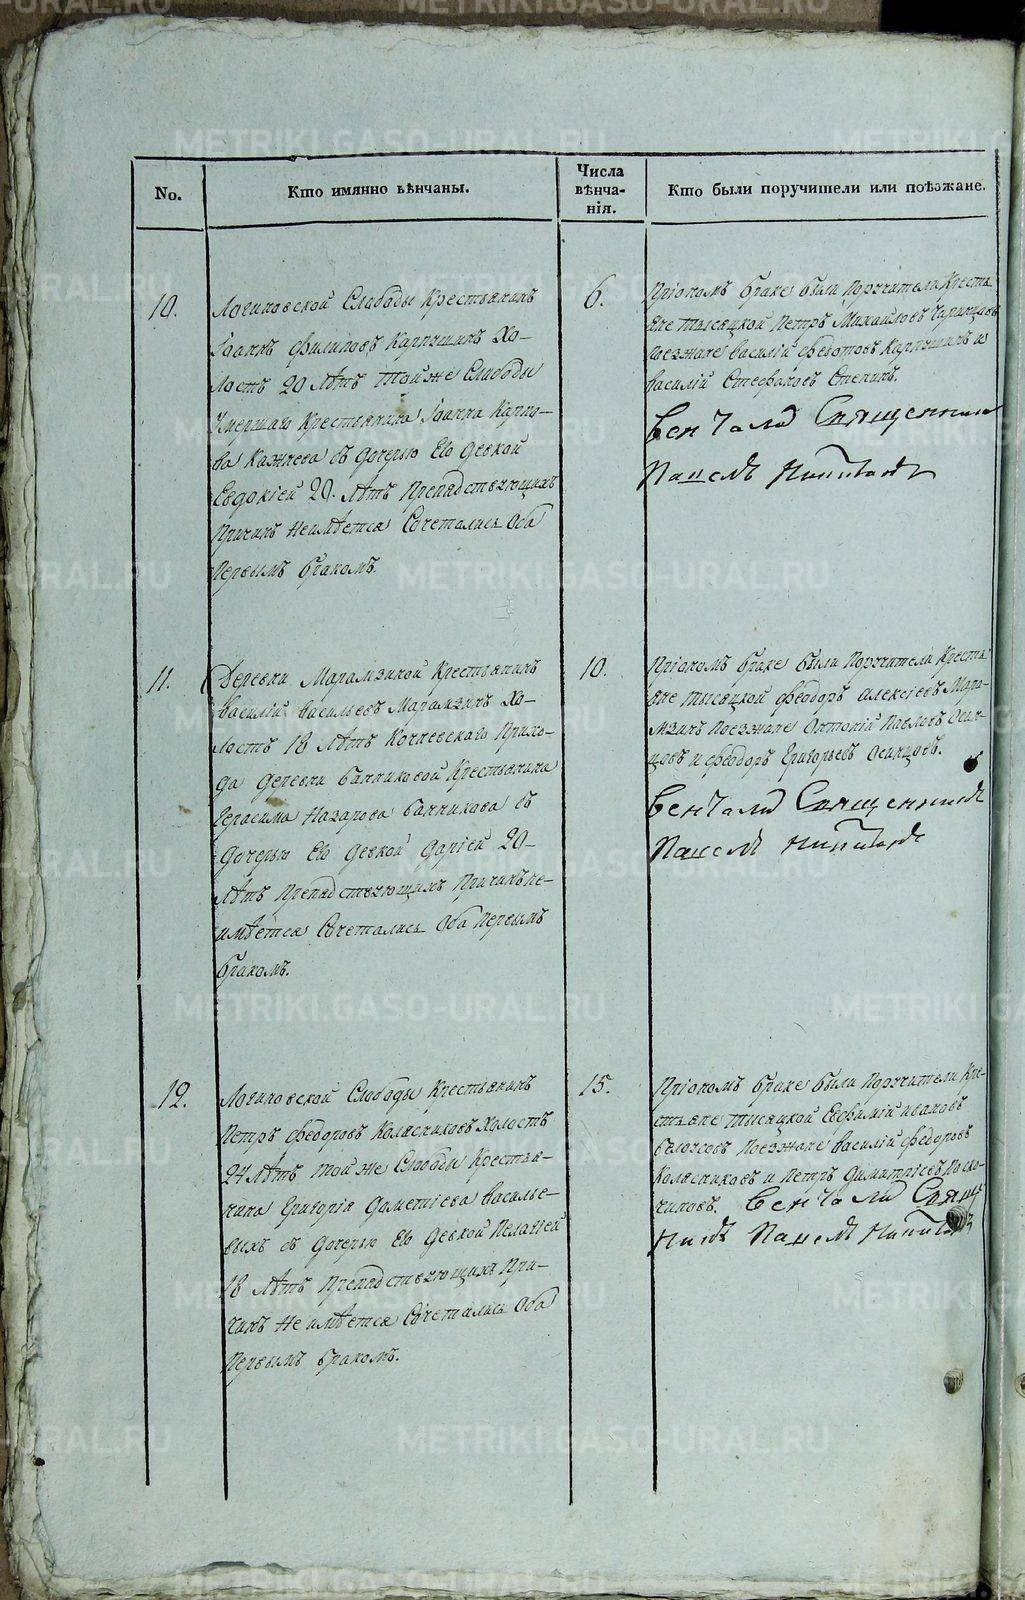 No.
Кто имянно вѣнчаны.
Числа
вѣнча-
нія.
Кто были поручители или поѣзжане.
10.
Логиновской Слободы Крестьянинъ
Іоаннъ Филиповъ Карпушинъ Хо-
лостъ 20 лѣтъ тойже Слободы
Умершаго Крестьянина Іоанна Карпо-
ва съ дочерью Ею девкой
Евдокіей 20. лѣтъ Препядствующихъ
Причинъ Неимѣется Сочетались Оба
Первымъ бракомъ.
6.
Пріономъ браке были Поручители Кресть
яне тысяцкой Петръ Михайловъ
поезжане Василій Федотовъ Карпушинъ и
Василій Стефановъ
Венчалъ Священникъ
11.
Деревни Марамзиной Крестьянинъ
Василій Васильевъ Марамзинъ Хо-
лостъ 18 лѣтъ Кочневскаго Прихо-
да деревни Банниковой Крестьянина
Герасима Назарова Банникова съ
дочерью Ею девкой Дарьей 20-
лѣтъ Препядствующихъ Причинъ не-
имѣется Сочетались Оба Первымъ
бракомъ.
10.
Пріономъ браке были Поручители Кресть
яне тысяцкой Феодоръ Алексіевъ Мара-
мзинъ Поезжане Антоній Павловъ Осин-
цовъ и Феодоръ Григорьевъ Осинцовъ.
Венчалъ Священникъ
12.
Логиновской Слободы Крестьянинъ
Петръ Федоровъ Колясниковъ Холостъ
24 лѣтъ той же Слободы Крестья-
нина Григорія Дометіева Василье-
выхъ съ дочерью Ею девкой Пелагіей
18 лѣтъ Препядствующихъ При-
чинъ Не имѣется Сочетались Оба
Первымъ бракомъ.
15.
Пріономъ браке были Поручители Кре-
стьяне тысяцкой Евфимій Ивановъ
Поезжане Василій Федоровъ
Колясниковъ и Петръ Димитріевъ
Венчалъ Свящ
никъ
METRIKI.GASO-URAL.RU